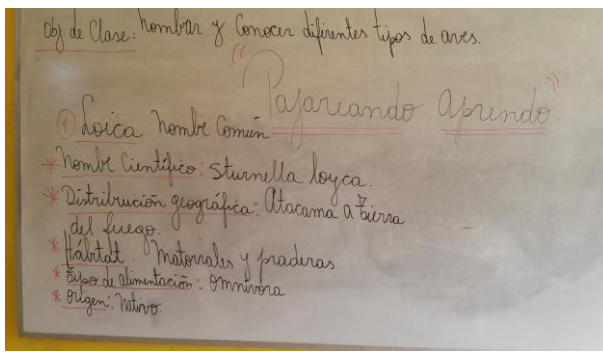 Obj. de Clase: Nombrar y Conocer diferentes tipos de aves.
"Pajareando Aprendo"
① Loica Nombre Común
* Nombre Científico: Sturnella loyca.
* Distribución geográfica: Atacama a tierra
del fuego.
* Hábitat. Matorrales y praderas.
* Tipo de alimentación: Omnívora
* Origen: Nativo.